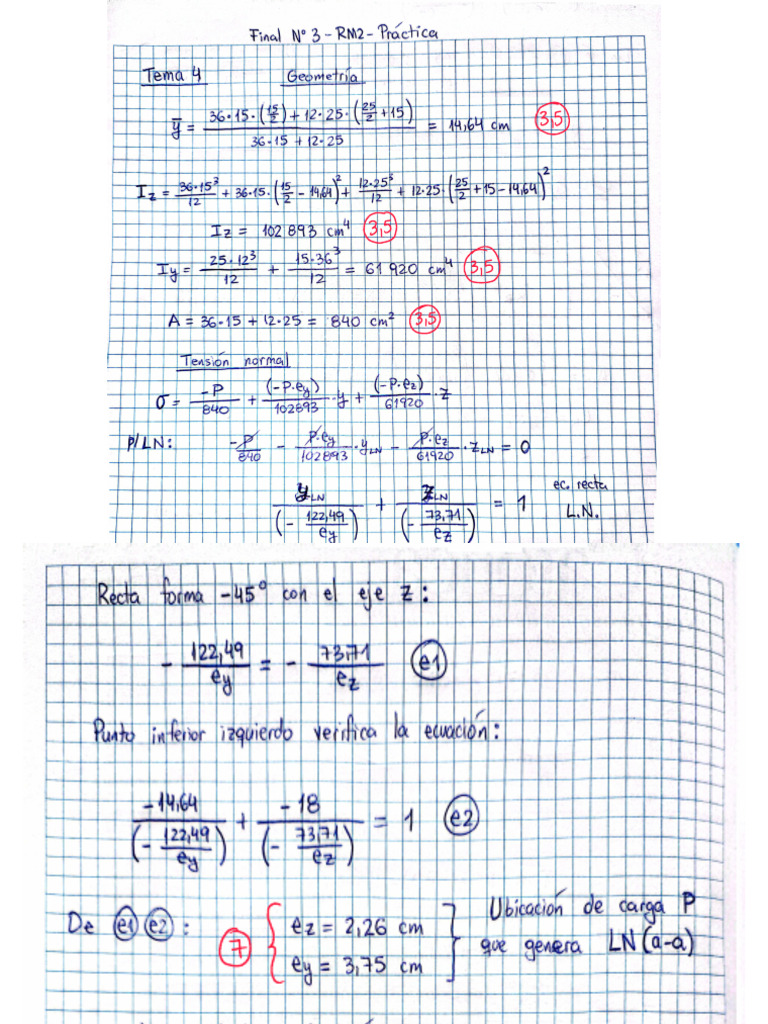 Final N° 3 - RM2 - Práctica
Tema 4 Geometría
ȳ = (36·15·(15/2) + 12·25·(25/2 + 15)) / (36·15 + 12·25) = 14,64 cm 3,5
I_z = 36·15³/12 + 36·15·(15/2 - 14,64)² + 12·25³/12 + 12·25·(25/2 + 15 - 14,64)²
I_z = 102 893 cm⁴ 3,5
I_y = 25·12³/12 + 15·36³/12 = 61 920 cm⁴ 3,5
A = 36·15 + 12·25 = 840 cm² 3,5
Tensión normal
σ = -P/840 + (-P·e_y)/102893 · y + (-P·e_z)/61920 · z
p/LN: -P/840 - P·e_y/102893 · y_LN - P·e_z/61920 · z_LN = 0
y_LN/(-122,49/e_y) + z_LN/(-73,71/e_z) = 1 ec. recta L.N.
Recta forma -45° con el eje z:
-122,49/e_y = -73,71/e_z e1
Punto inferior izquierdo verifica la ecuación:
-14,64/(-122,49/e_y) + -18/(-73,71/e_z) = 1 e2
De e1 e2: 7 { e_z = 2,26 cm Ubicación de carga P
e_y = 3,75 cm que genera LN (a-a)